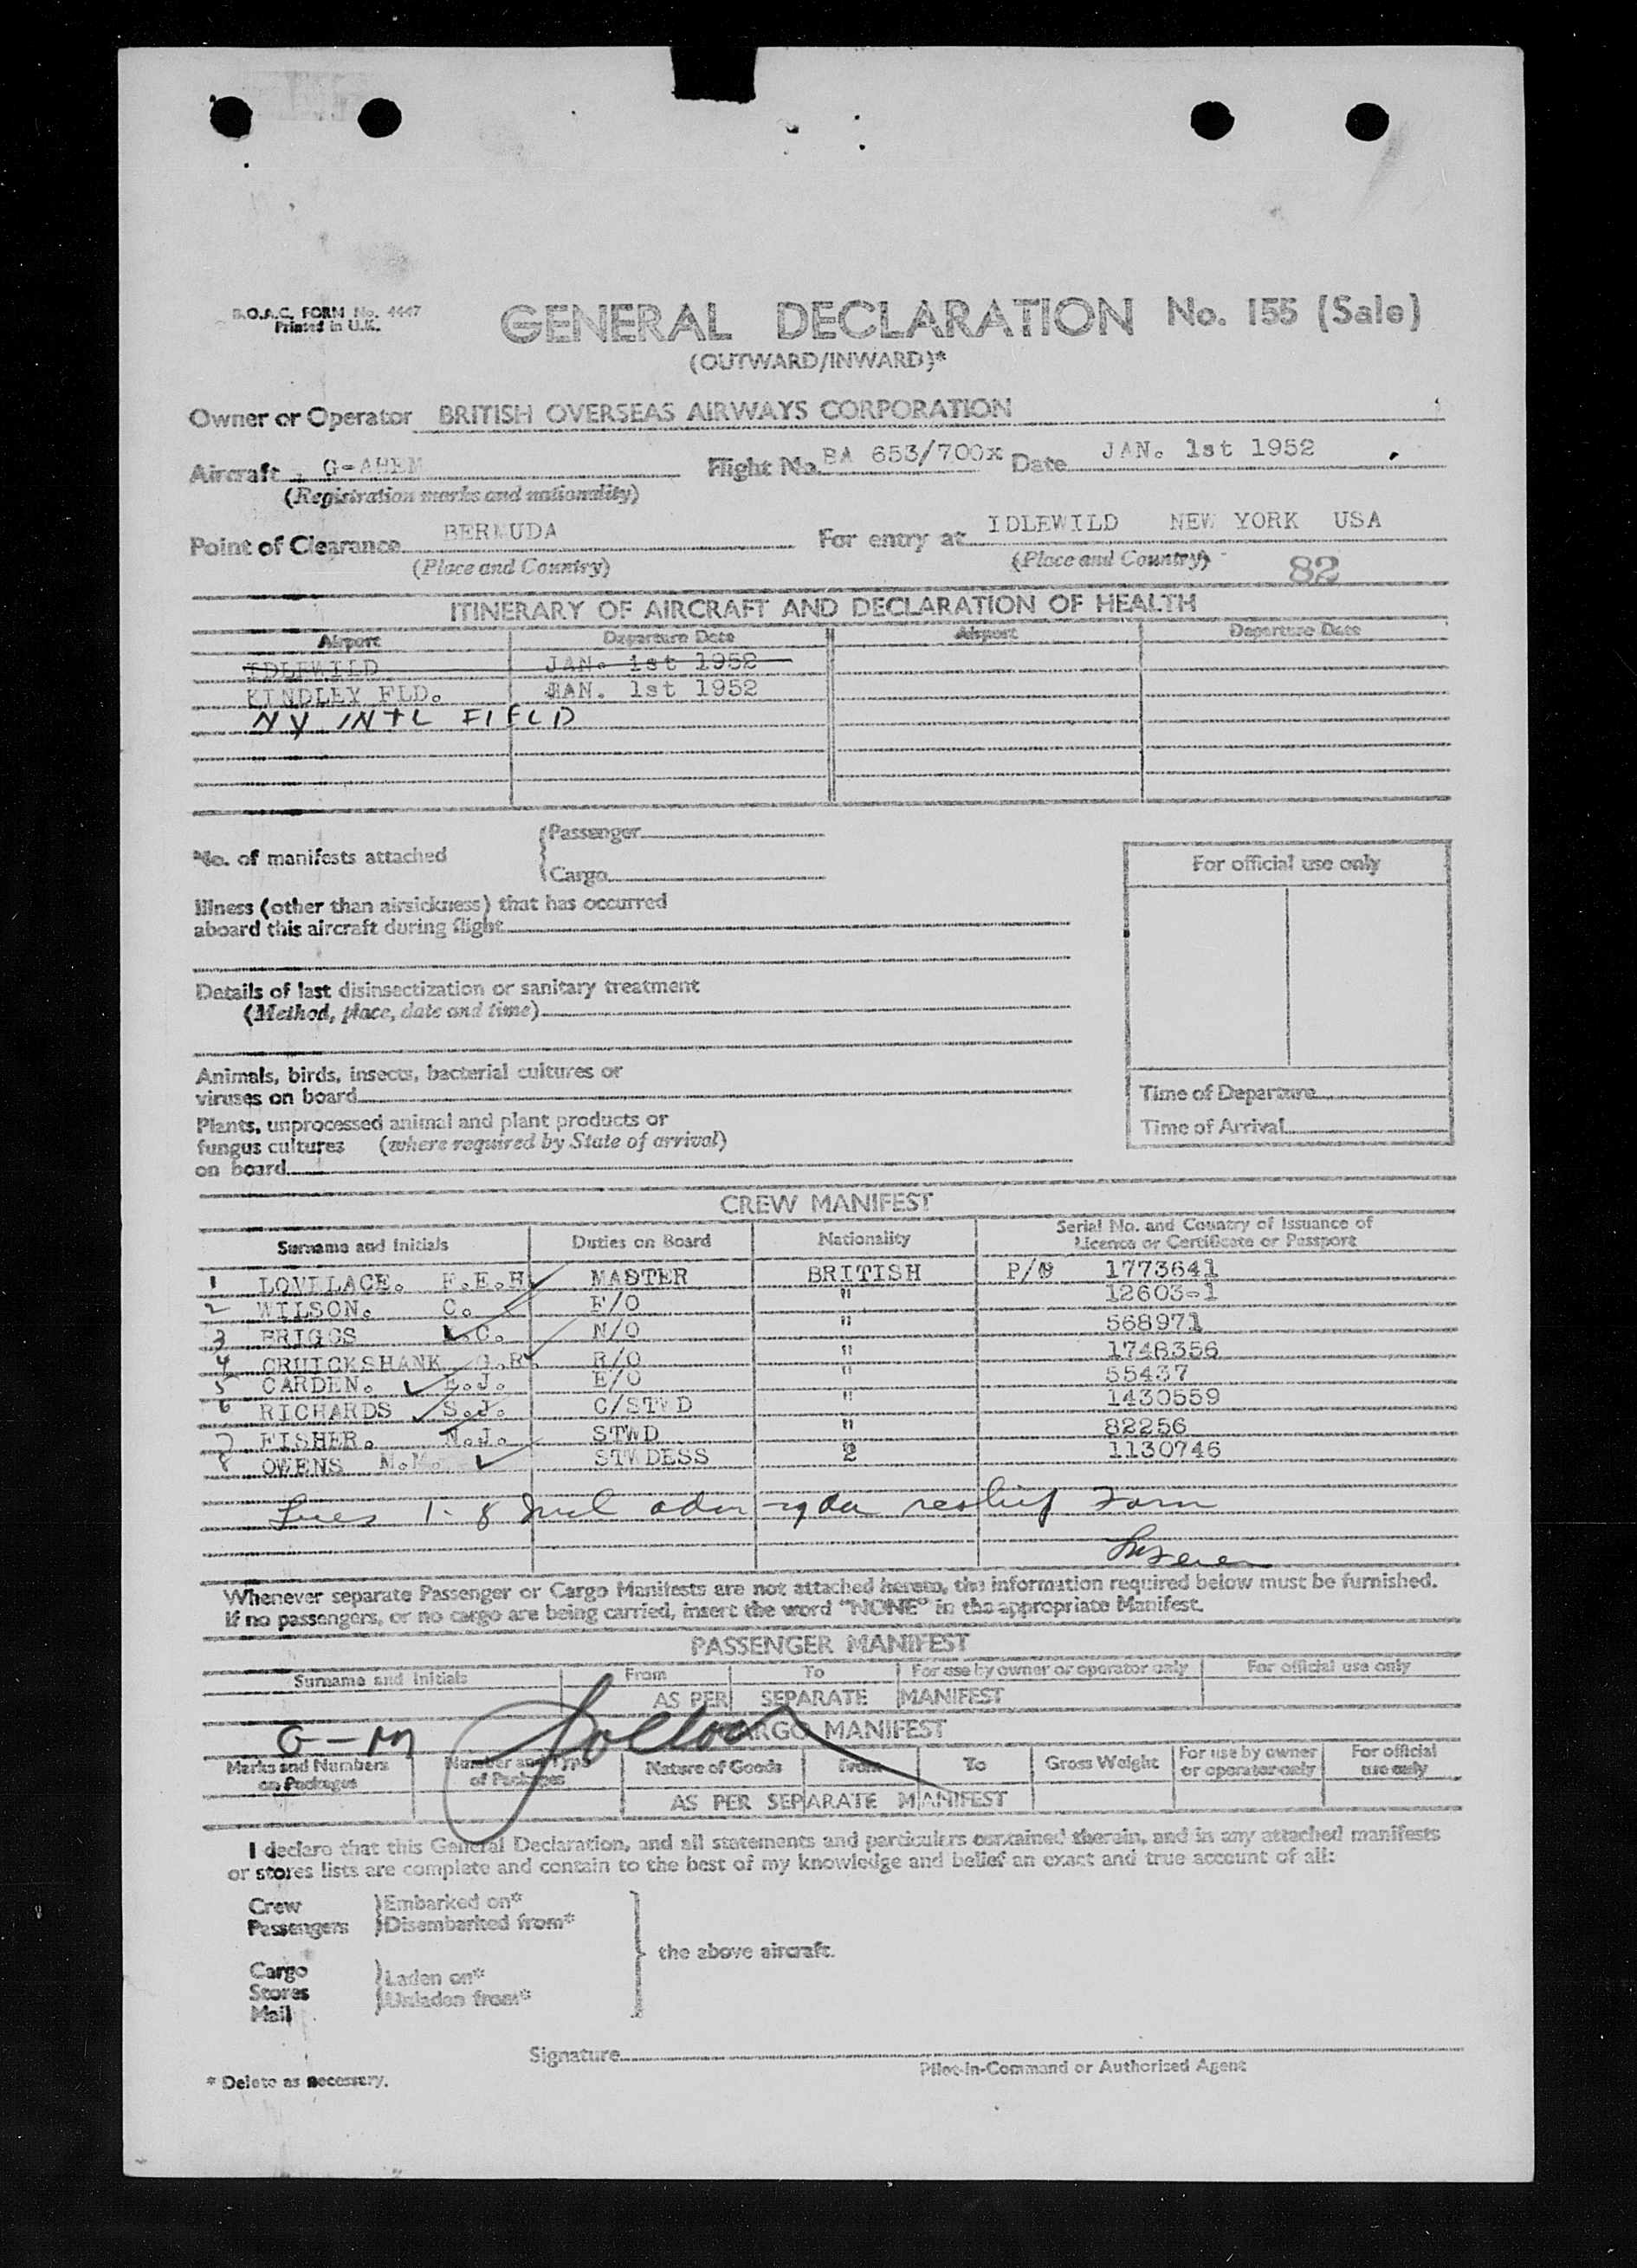 B.O.A.C. FORM No. 4447
Printed in U.K.
GENERAL DECLARATION No. 155 (Sale)
(OUTWARD/INWARD)*
Owner or Operator BRITISH OVERSEAS AIRWAYS CORPORATION
Aircraft G-AHEM Flight No. BA 653/700x Date JAN. 1st 1952
(Registration marks and nationality)
Point of Clearance BERMUDA For entry at IDLEWILD NEW YORK USA
(Place and Country) (Place and Country) 82
ITINERARY OF AIRCRAFT AND DECLARATION OF HEALTH
Airport Departure Date Airport Departure Date
IDLEWILD JAN. 1st 1952
KINDLEY FLD. JAN. 1st 1952
NY INTL FIELD
*No. of manifests attached
Passenger
Cargo
For official use only
Illness (other than airsickness) that has occurred
aboard this aircraft during flight
Details of last disinsectization or sanitary treatment
(Method, place, date and time)
Animals, birds, insects, bacterial cultures or
viruses on board
Time of Departure
Plants, unprocessed animal and plant products or
Time of Arrival
fungus cultures (where required by State of arrival)
on board
CREW MANIFEST
Surname and Initials Duties on Board Nationality Serial No. and Country of Issuance of
Licence or Certificate or Passport
1 LOVELACE. F.E.H. MASTER BRITISH P/N 1773641
2 WILSON. C. F/O " 12603-1
3 BRIGGS C. N/O " 568971
4 CRUICKSHANK G.R. R/O " 1748356
5 CARDEN. E.J. E/O " 55437
6 RICHARDS S.J. C/STWD " 1430559
7 FISHER. N.J. STWD " 82256
8 OWENS M.M. STWDESS 2 1130746
1-8
Whenever separate Passenger or Cargo Manifests are not attached hereto, the information required below must be furnished.
If no passengers, or no cargo are being carried, insert the word "NONE" in the appropriate Manifest.
PASSENGER MANIFEST
Surname and Initials From To For use by owner or operator only For official use only
AS PER SEPARATE MANIFEST
G-M
CARGO MANIFEST
Marks and Numbers on Packages Number and Type of Packages Nature of Goods From To Gross Weight For use by owner or operator only For official use only
AS PER SEPARATE MANIFEST
I declare that this General Declaration, and all statements and particulars contained therein, and in any attached manifests
or stores lists are complete and contain to the best of my knowledge and belief an exact and true account of all:
Crew Embarked on*
Passengers Disembarked from*
the above aircraft.
Cargo Laden on*
Stores Unladen from*
Mail
Signature
Pilot-in-Command or Authorised Agent
* Delete as necessary.